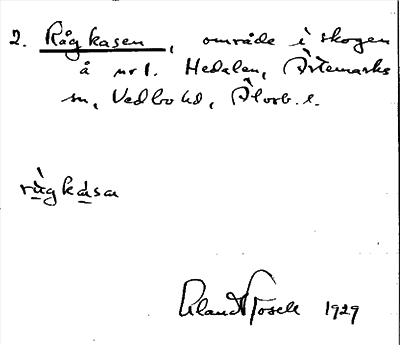 2. Rågkasen, område i skogen
å nr 1. Hedalen, Ärtemarks
sn, Vedbo hd, Älvsb. l.
rùgkása
1929